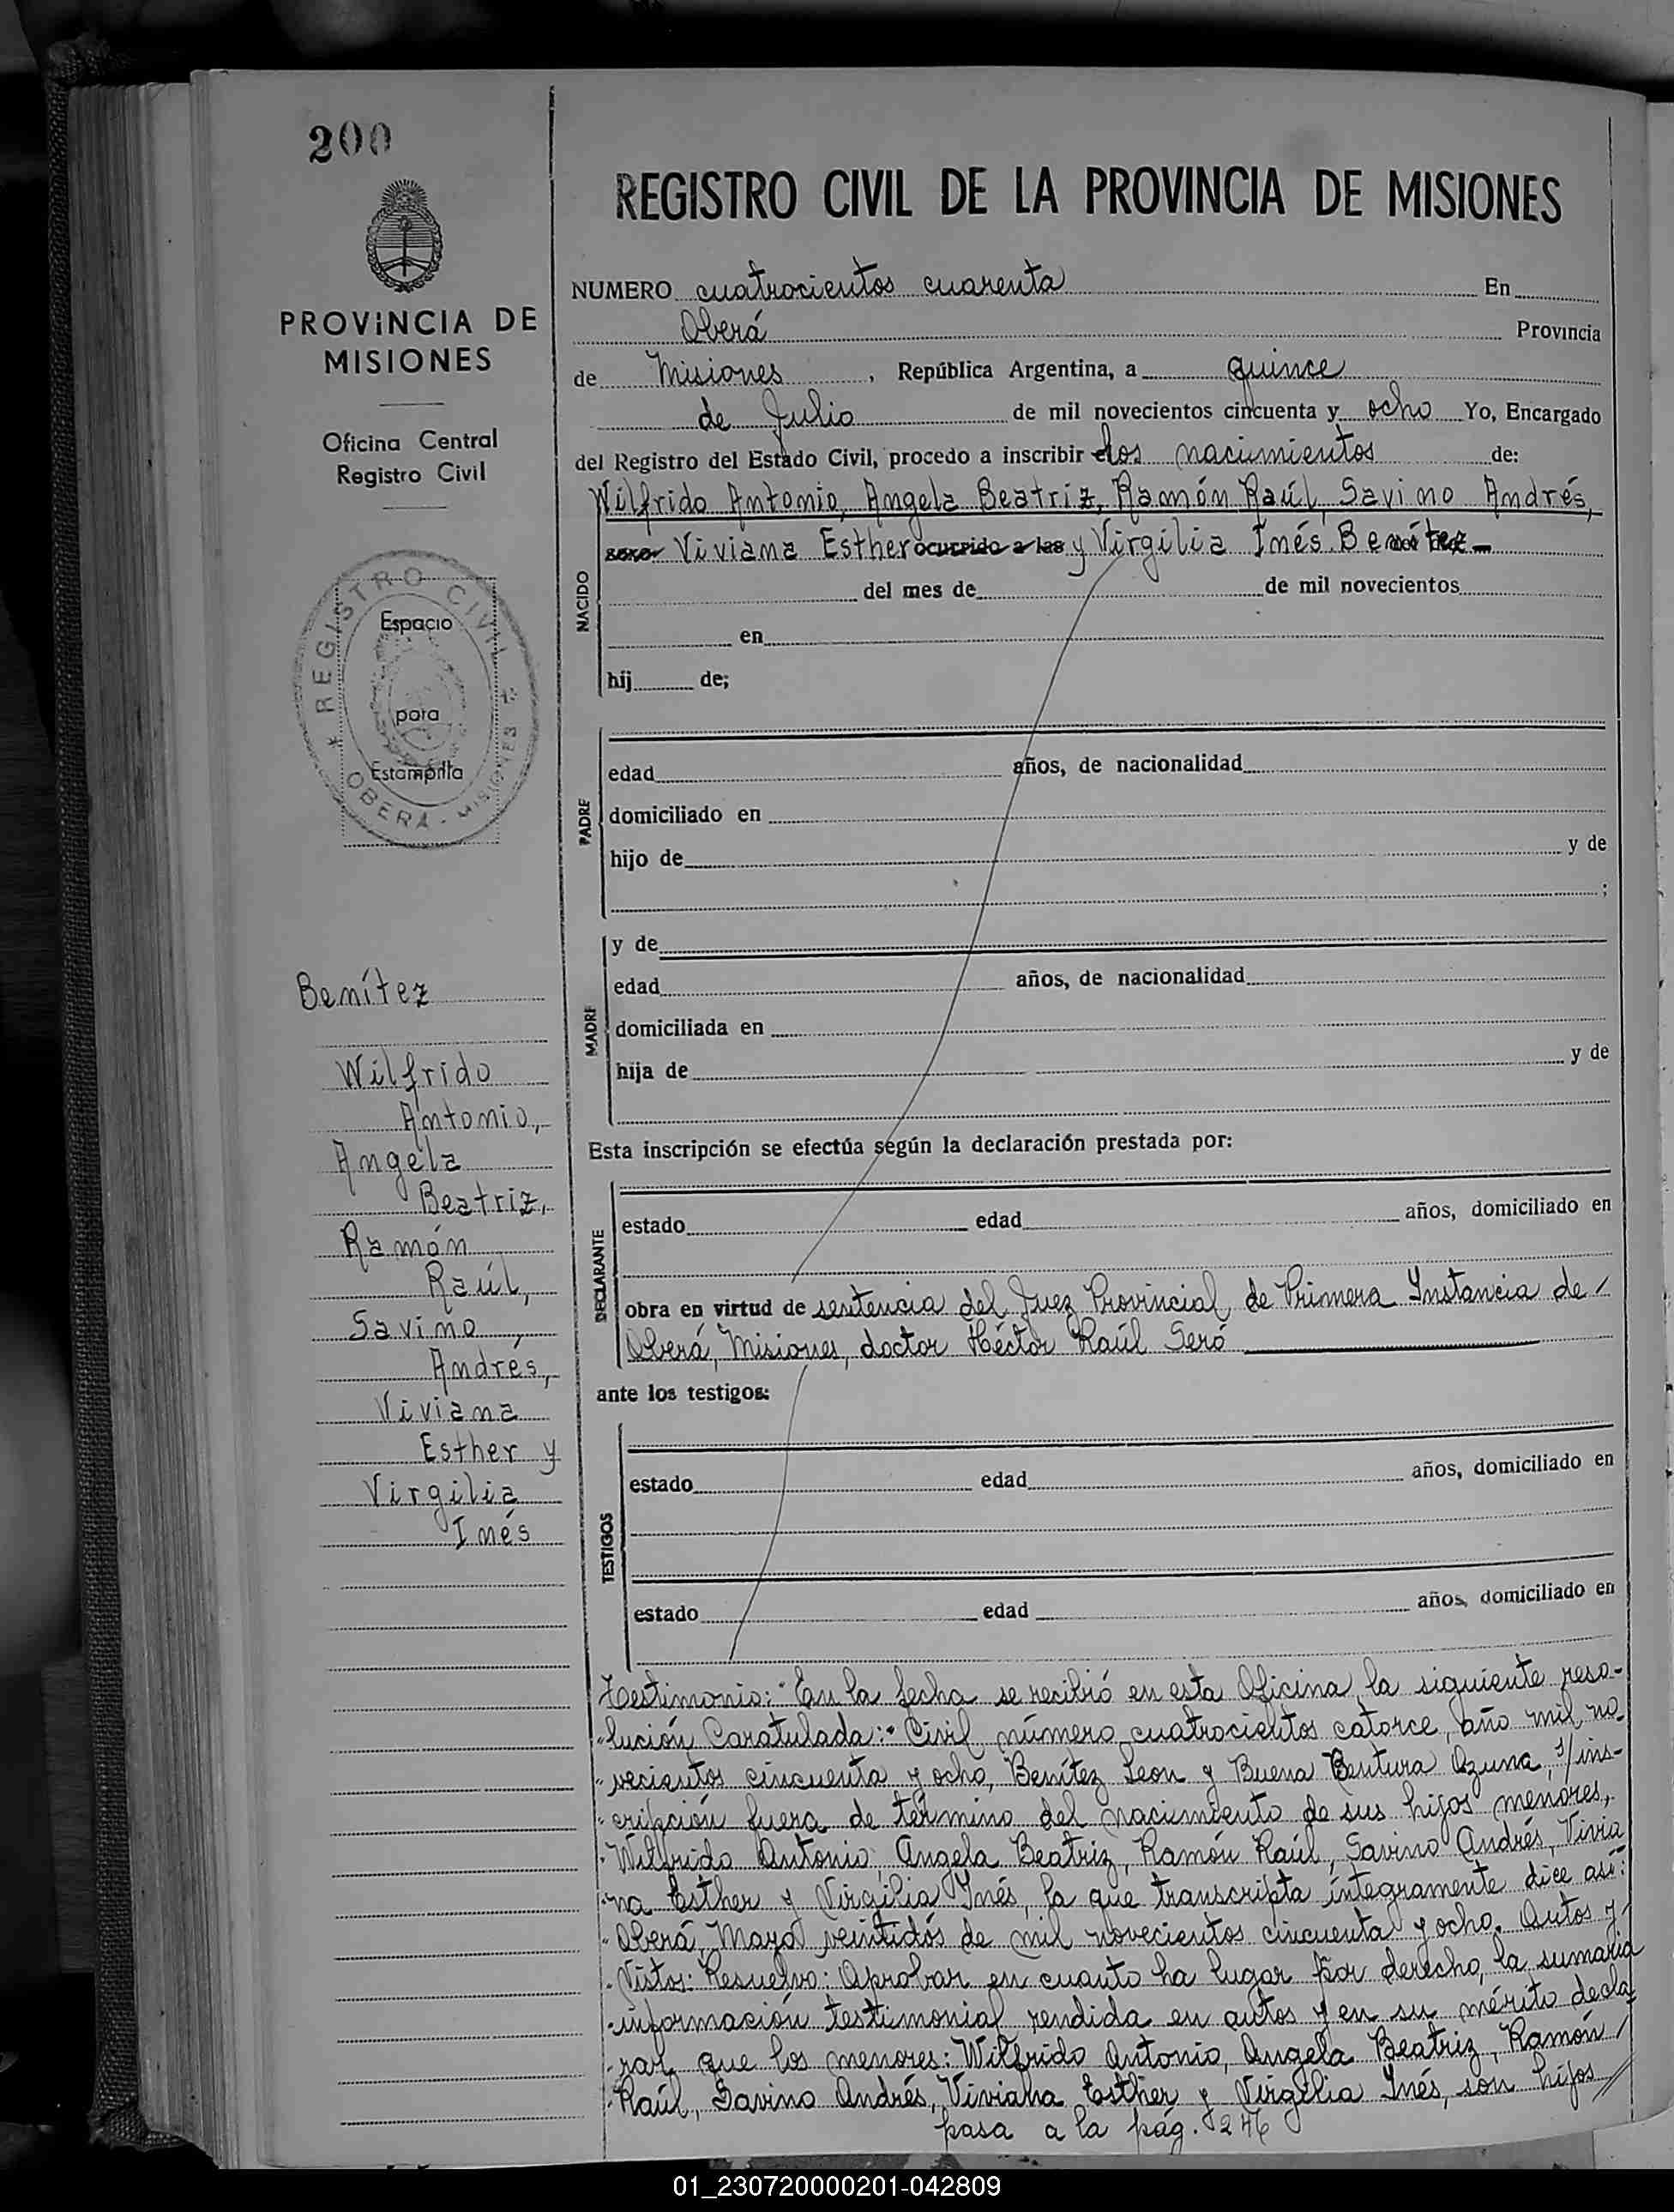 200
PROVINCIA DE
MISIONES
Oficina Central
Registro Civil
REGISTRO CIVIL
Espacio
para
Estampilla
OBERÁ - MISIONES
Benítez
Wilfrido
Antonio,
Angela
Beatriz,
Ramón
Raúl,
Savino,
Andrés,
Viviana
Esther y
Virgilia
Inés
REGISTRO CIVIL DE LA PROVINCIA DE MISIONES
NUMERO cuatrocientos cuarenta En
Oberá Provincia
de Misiones, República Argentina, a quince
de Julio de mil novecientos cincuenta y ocho Yo, Encargado
del Registro del Estado Civil, procedo a inscribir los nacimientos de:
Wilfrido Antonio, Angela Beatriz, Ramón Raúl, Savino Andrés,
sexo Viviana Esther ocurrido a las y Virgilia Inés Benítez
NACIDO
del mes de de mil novecientos
en
hij de;
PADRE
edad años, de nacionalidad
domiciliado en
hijo de y de
;
MADRE
y de
edad años, de nacionalidad
domiciliada en
hija de y de
Esta inscripción se efectúa según la declaración prestada por:
DECLARANTE
estado edad años, domiciliado en
obra en virtud de sentencia del Juez Provincial de Primera Instancia de/
Oberá, Misiones, doctor Héctor Raúl Seró
ante los testigos:
TESTIGOS
estado edad años, domiciliado en
estado edad años, domiciliado en
Testimonio: "En la fecha se recibió en esta Oficina la siguiente reso-
"lución Caratulada: "Civil número cuatrocientos catorce, año mil no-
"vecientos cincuenta y ocho, Benítez Leon y Buena Bentura Ozuna, s/ins-
"cripción fuera de término del nacimiento de sus hijos menores,
"Wilfrido Antonio, Angela Beatriz, Ramón Raúl, Savino Andrés, Vivia
"na Esther y Virgilia Inés, la que transcripta íntegramente dice así:
"Oberá, Mayo veintidós de mil novecientos cincuenta y ocho. Autos y
"Vistos: Resuelvo: Aprobar en cuanto ha lugar por derecho, la sumaria
"información testimonial rendida en autos y en su mérito decla
"rar que los menores: Wilfrido Antonio, Angela Beatriz, Ramón/
"Raúl, Savino Andrés, Viviana Esther y Virgilia Inés, son hijos//
pasa a la pág. 246
01_230720000201-042809